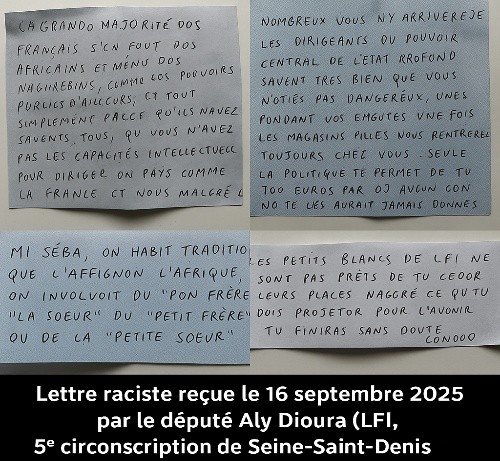 LA GRANDO MAJORITÉ DOS
FRANÇAIS S'EN FOUT DOS
AFRICAINS ET MÉNU DOS
NAGHREBINS, COMME LOS POUVOIRS
PUBLICS D'AILLCURS, ET TOUT
SIMPLEMENT PALCE QU'ILS NAVEZ
SAVENTS, TOUS, QU VOUS N'AVEZ
PAS LES CAPACITÉS INTELLECTUELL
POUR DIRIGER ON PAYS COMME
LA FRANLE CT NOUS MALGRÉ L
NOMBREUX VOUS NY ARRIVEREJE
LES DIRIGEANTS DU POUVOIR
CENTRAL DE L'ETAT RROFOND
SAVENT TRES BIEN QUE VOUS
N'OTIÉS PAS DANGERËUX, UNES
PONDANT VOS EMGUTES VNE FOIS
LES MAGASINS PILLES NOUS RENTREREL
TOUJOURS CHEZ VOUS - SEULE
LA POLITIQUE TE PERMET DE TU
700 EUROS PAR OJ AVGUN CON
NO TE LES AURAIT JAMAIS DONNES
MI SÉBA, ON HABIT TRADITIO
QUE L'AFFIGNON L'AFRIQUE,
ON INVOLVOIT DU "PON FRÈRE
"LA SOEUR" DU "PETIT FRÈRE"
OU DE LA "PETITE SOEUR"
LES PETITS BLANCS DE LFI NE
SONT PAS PRÊTS DE TU CEOOR
LEURS PLACES NAGGRÉ CE QU TU
DOIS PROJETOR POUR L'AVONIR
TU FINIRAS SANS DOUTE
CONOOO
Lettre raciste reçue le 16 septembre 2025
par le député Aly Dioura (LFI,
5e circonscription de Seine-Saint-Denis